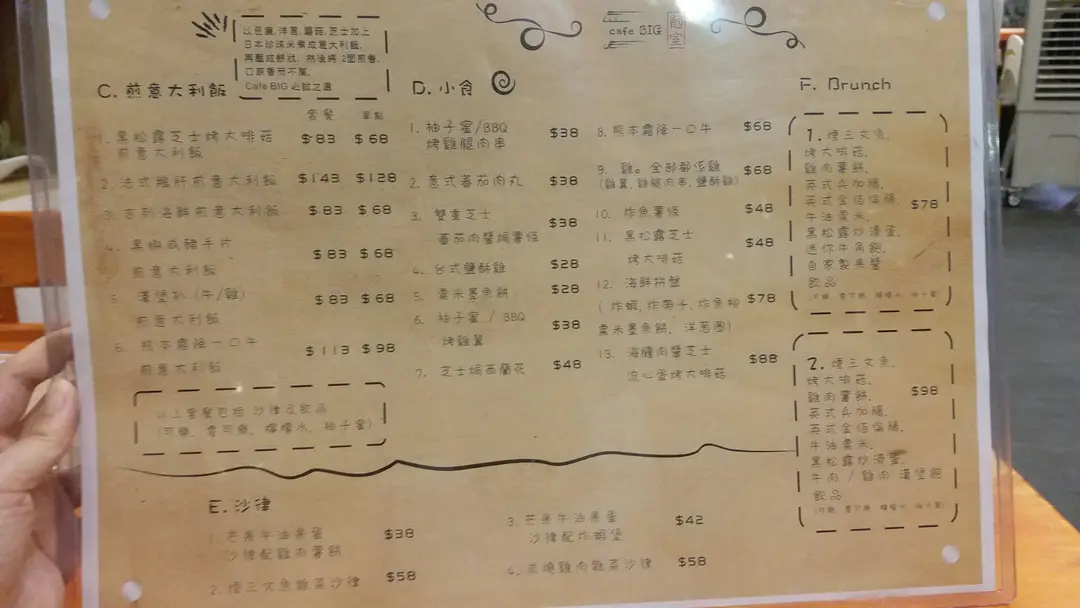 以芭蕉,洋蔥,蘑菇,芝士加上
日本珍珠米煮成意大利飯,
再壓成餅狀, 然後將 2面煎香,
口感香而不膩,
Cafe BIG 必試之選
cafe BIG
C. 煎意大利飯
套餐 單點
1. 黑松露芝士烤大啡菇 $83 $68
煎意大利飯
2. 法式鴨肝煎意大利飯 $143 $128
3. 吉列海鮮煎意大利飯 $83 $68
4. 黑椒咸豬手片 $83 $68
煎意大利飯
5. 漢堡扒 (牛/雞) $83 $68
煎意大利飯
6. 熊本霜降一口牛 $113 $98
煎意大利飯
以上套餐包括 沙律及飲品
(可樂, 零可樂, 檸檬水, 柚子蜜)
D. 小食
1. 柚子蜜/BBQ $38
烤雞腿肉串
2. 意式蕃茄肉丸 $38
3. 雙重芝士 $38
蕃茄肉醬焗薯條
4. 台式鹽酥雞 $28
5. 粟米墨魚餅 $28
6. 柚子蜜 / BBQ $38
烤雞翼
7. 芝士焗西蘭花 $48
8. 熊本霜降一口牛 $68
9. 雞。全部都係雞 $68
(雞翼, 雞腿肉串, 鹽酥雞)
10. 炸魚薯條 $48
11. 黑松露芝士 $48
烤大啡菇
12. 海鮮拼盤 $78
(炸蝦, 炸帶子, 炸魚柳
粟米墨魚餅, 洋蔥圈)
13. 海膽肉醬芝士 $88
流心蛋烤大啡菇
E. 沙律
1. 芒果牛油果蛋 $38
沙律配雞肉薯餅
2. 煙三文魚雜菜沙律 $58
3. 芒果牛油果蛋 $42
沙律配炸蝦堡
4. 串燒雞肉雜菜沙律 $58
F. Brunch
1. 煙三文魚,
烤大啡菇,
雞肉薯餅,
英式兵加腸,
英式金佰倫腸, $78
牛油粟米,
黑松露炒滑蛋,
迷你牛角飽,
自家製果醬
飲品
(可樂, 零可樂, 檸檬水, 柚子蜜)
2. 煙三文魚,
烤大啡菇,
雞肉薯餅, $98
英式兵加腸,
英式金佰倫腸,
牛油粟米,
黑松露炒滑蛋,
牛肉 / 雞肉 漢堡飽
飲品
(可樂, 零可樂, 檸檬水, 柚子蜜)